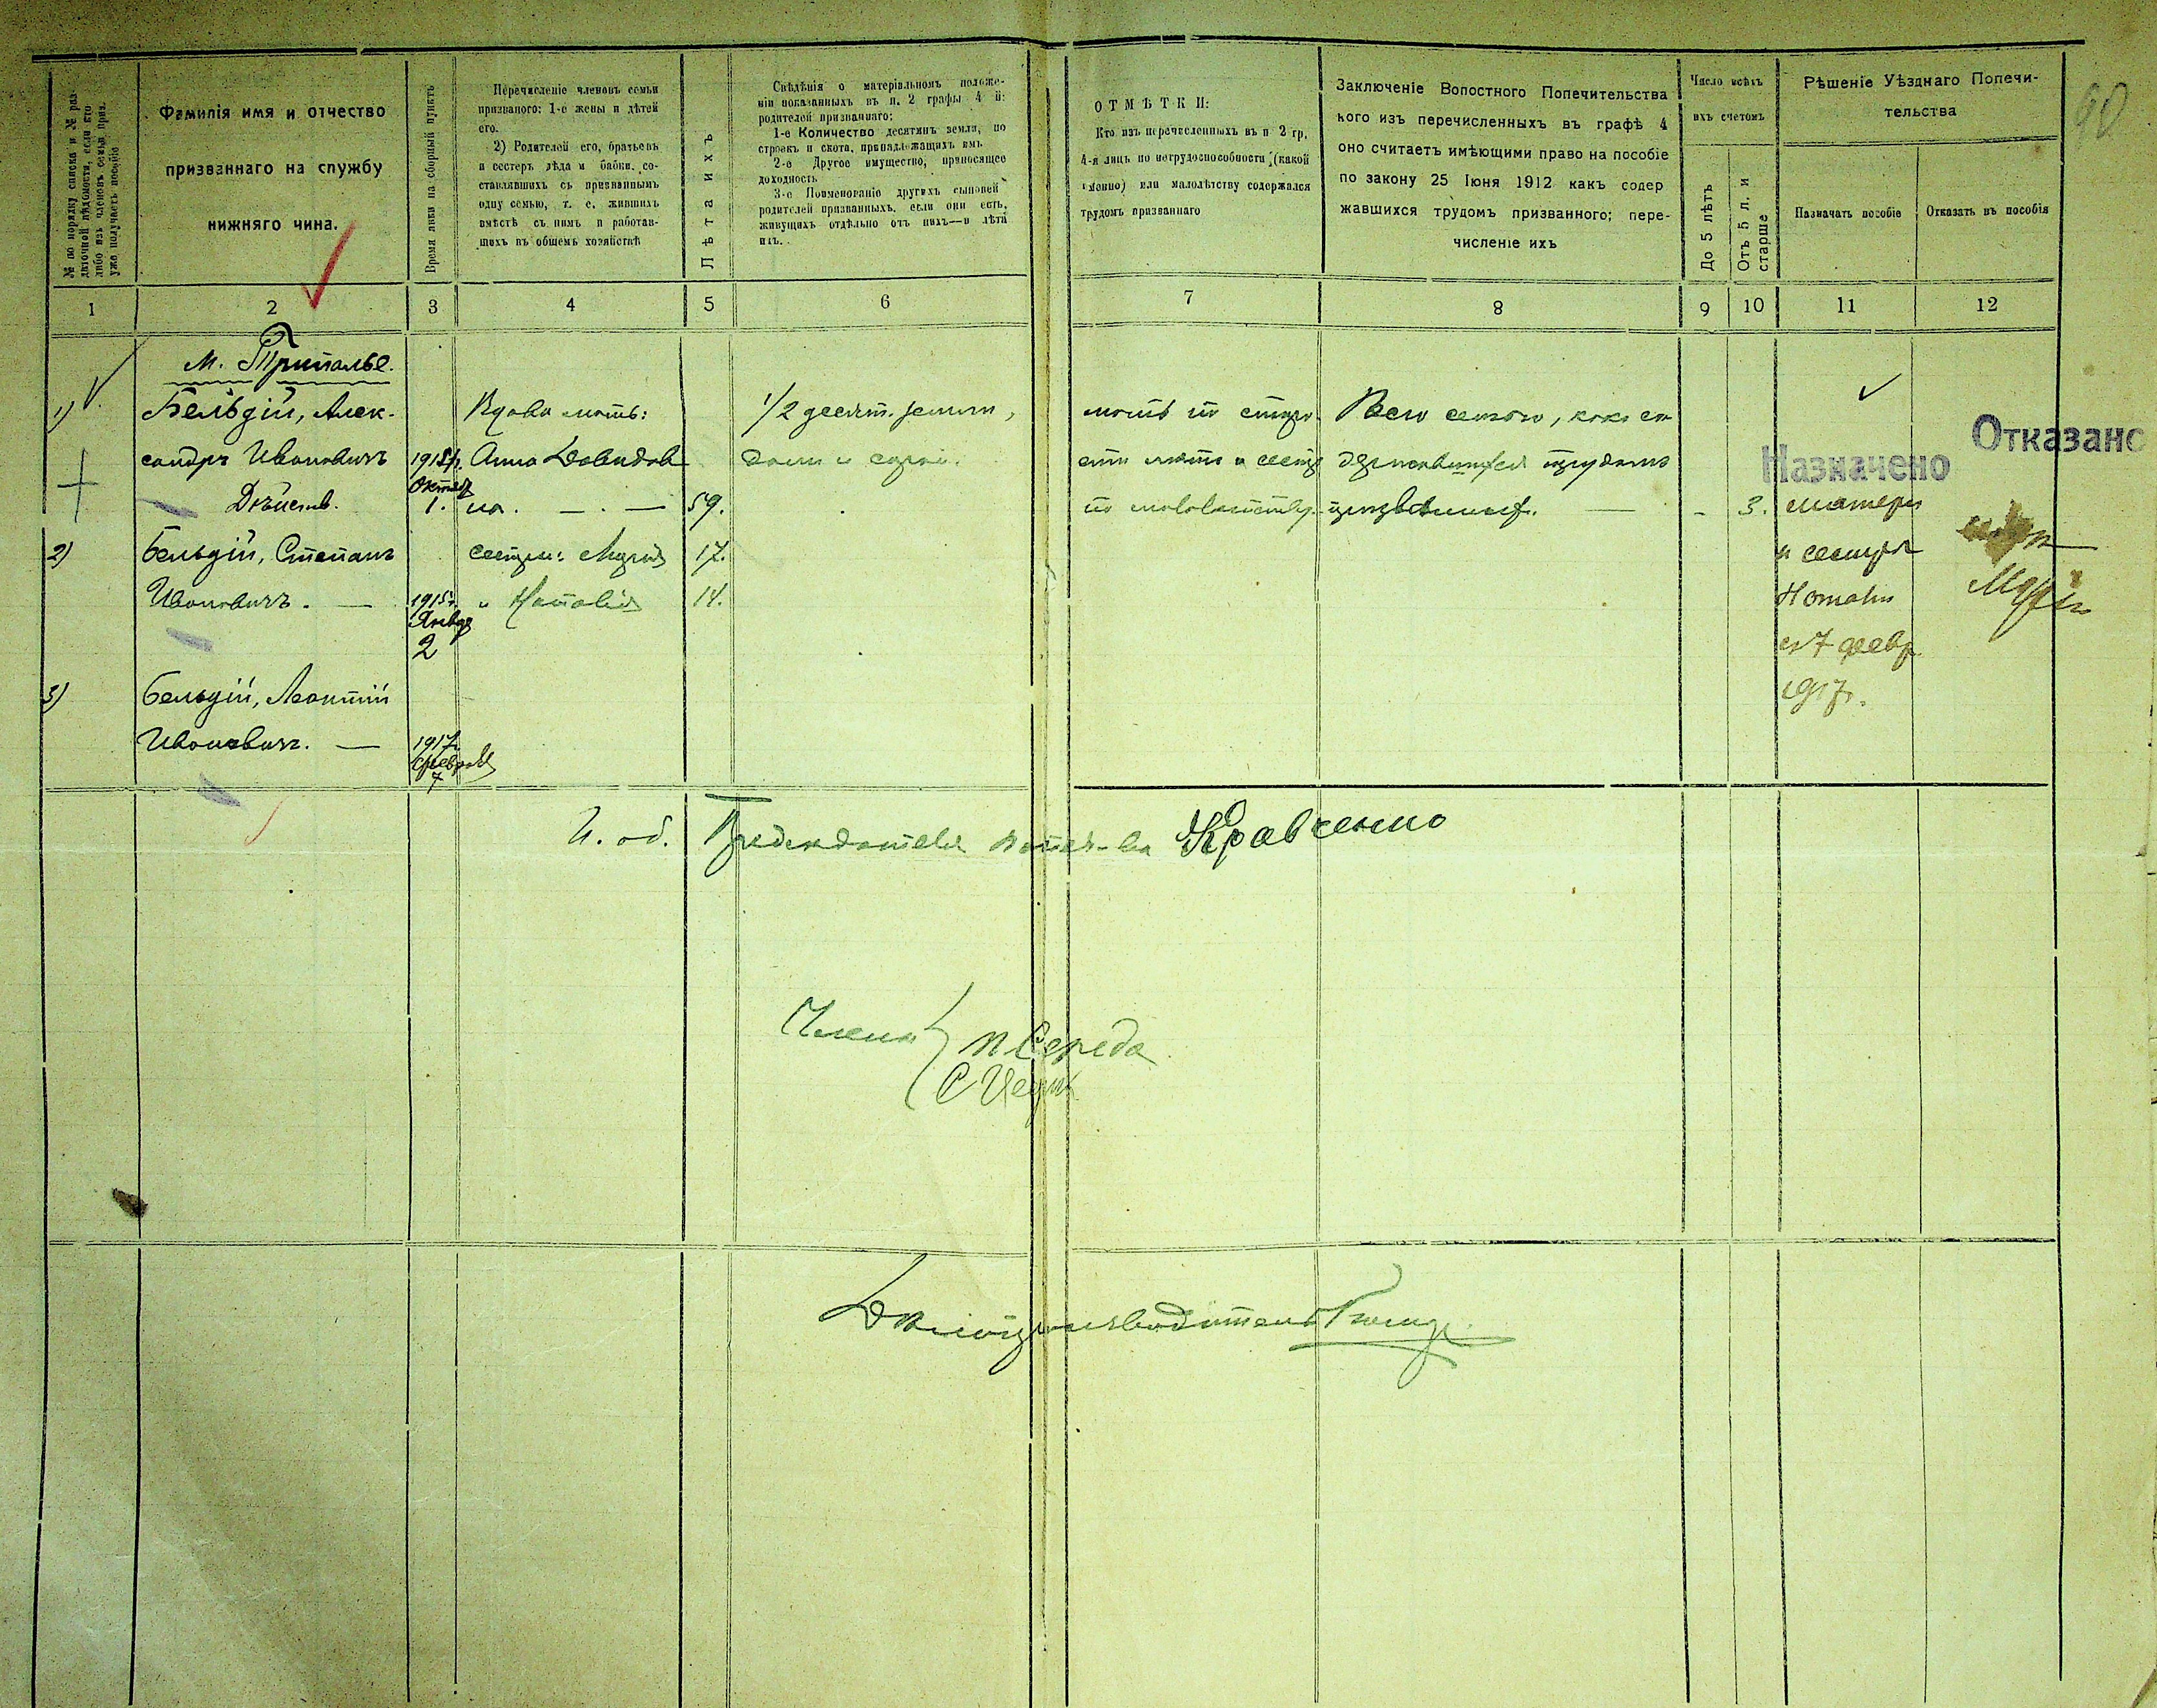 40
№ по порядку списка и № раз-
даточной вѣдомости, если кто
либо изъ членовъ семьи призв.
уже получаетъ пособіе
Фамилія имя и отчество
призваннаго на службу
нижняго чина.
Время явки на сборный пунктъ
Перечисленіе членовъ семьи
призванаго: 1-е жены и дѣтей
его.
2) Родителей его, братьевъ
и сестеръ дѣда и бабки, со-
ставлявшихъ съ призваннымъ
одну семью, т. е. жившихъ
вмѣстѣ съ нимъ и работав-
шихъ въ общемъ хозяйствѣ
Лѣта ихъ
Свѣдѣнія о матеріальномъ положе-
ніи показанныхъ въ п. 2 графы 4 й:
родителей призваннаго:
1-е Количество десятинъ земли, по
строекъ и скота, принадлежащихъ имъ
2-е Другое имущество, приносящее
доходность
3-е Поименованіе другихъ сыновей
родителей призванныхъ, если они есть,
живущихъ отдѣльно отъ нихъ—и лѣта
ихъ.
ОТМѢТКИ:
Кто изъ перечисленныхъ въ п 2 гр,
4-я лицъ по нетрудоспособности (какой
именно) или малолѣтству содержался
трудомъ призваннаго
Заключеніе Вопостного Попечительства
кого изъ перечисленныхъ въ графѣ 4
оно считаетъ имѣющими право на пособіе
по закону 25 Іюня 1912 какъ содер
жавшихся трудомъ призванного; пере-
численіе ихъ
Число всѣхъ
ихъ счетомъ
До 5 лѣтъ
Отъ 5 л. и
старше
Рѣшеніе Уѣзднаго Попечи-
тельства
Назначать пособіе
Отказать въ пособія
1 2 3 4 5 6 7 8 9 10 11 12
М. Триполье.
1) Бельдій, Алек-
сандръ Ивановичъ
Дѣйств.
1915 г.
Октяб
1.
Вдова мать:
Анна Давидов
на. — . — 59.
1/2 десят. земли,
домъ и сарай.
мать по старо-
сти лѣтъ и сестр
по малолѣтству.
Всю семью, какъ со
державшуюся трудомъ
призванныхъ. —
- 3.
Назначено
матери
и сестрѣ
Наталіи
съ 7 февр.
1917 г.
Отказано
Маріи
2) Бельдій, Степанъ
Ивановичъ. —
1915 г.
Январ
2
сестры: Марія 17.
" Наталія 14.
3) Бельдій, Леонтій
Ивановичъ. —
1917 г.
Феврал
7
И. об. Предсѣдателя попеч-ва Кравченко
Члены
П Середа
Дѣлопроизводитель